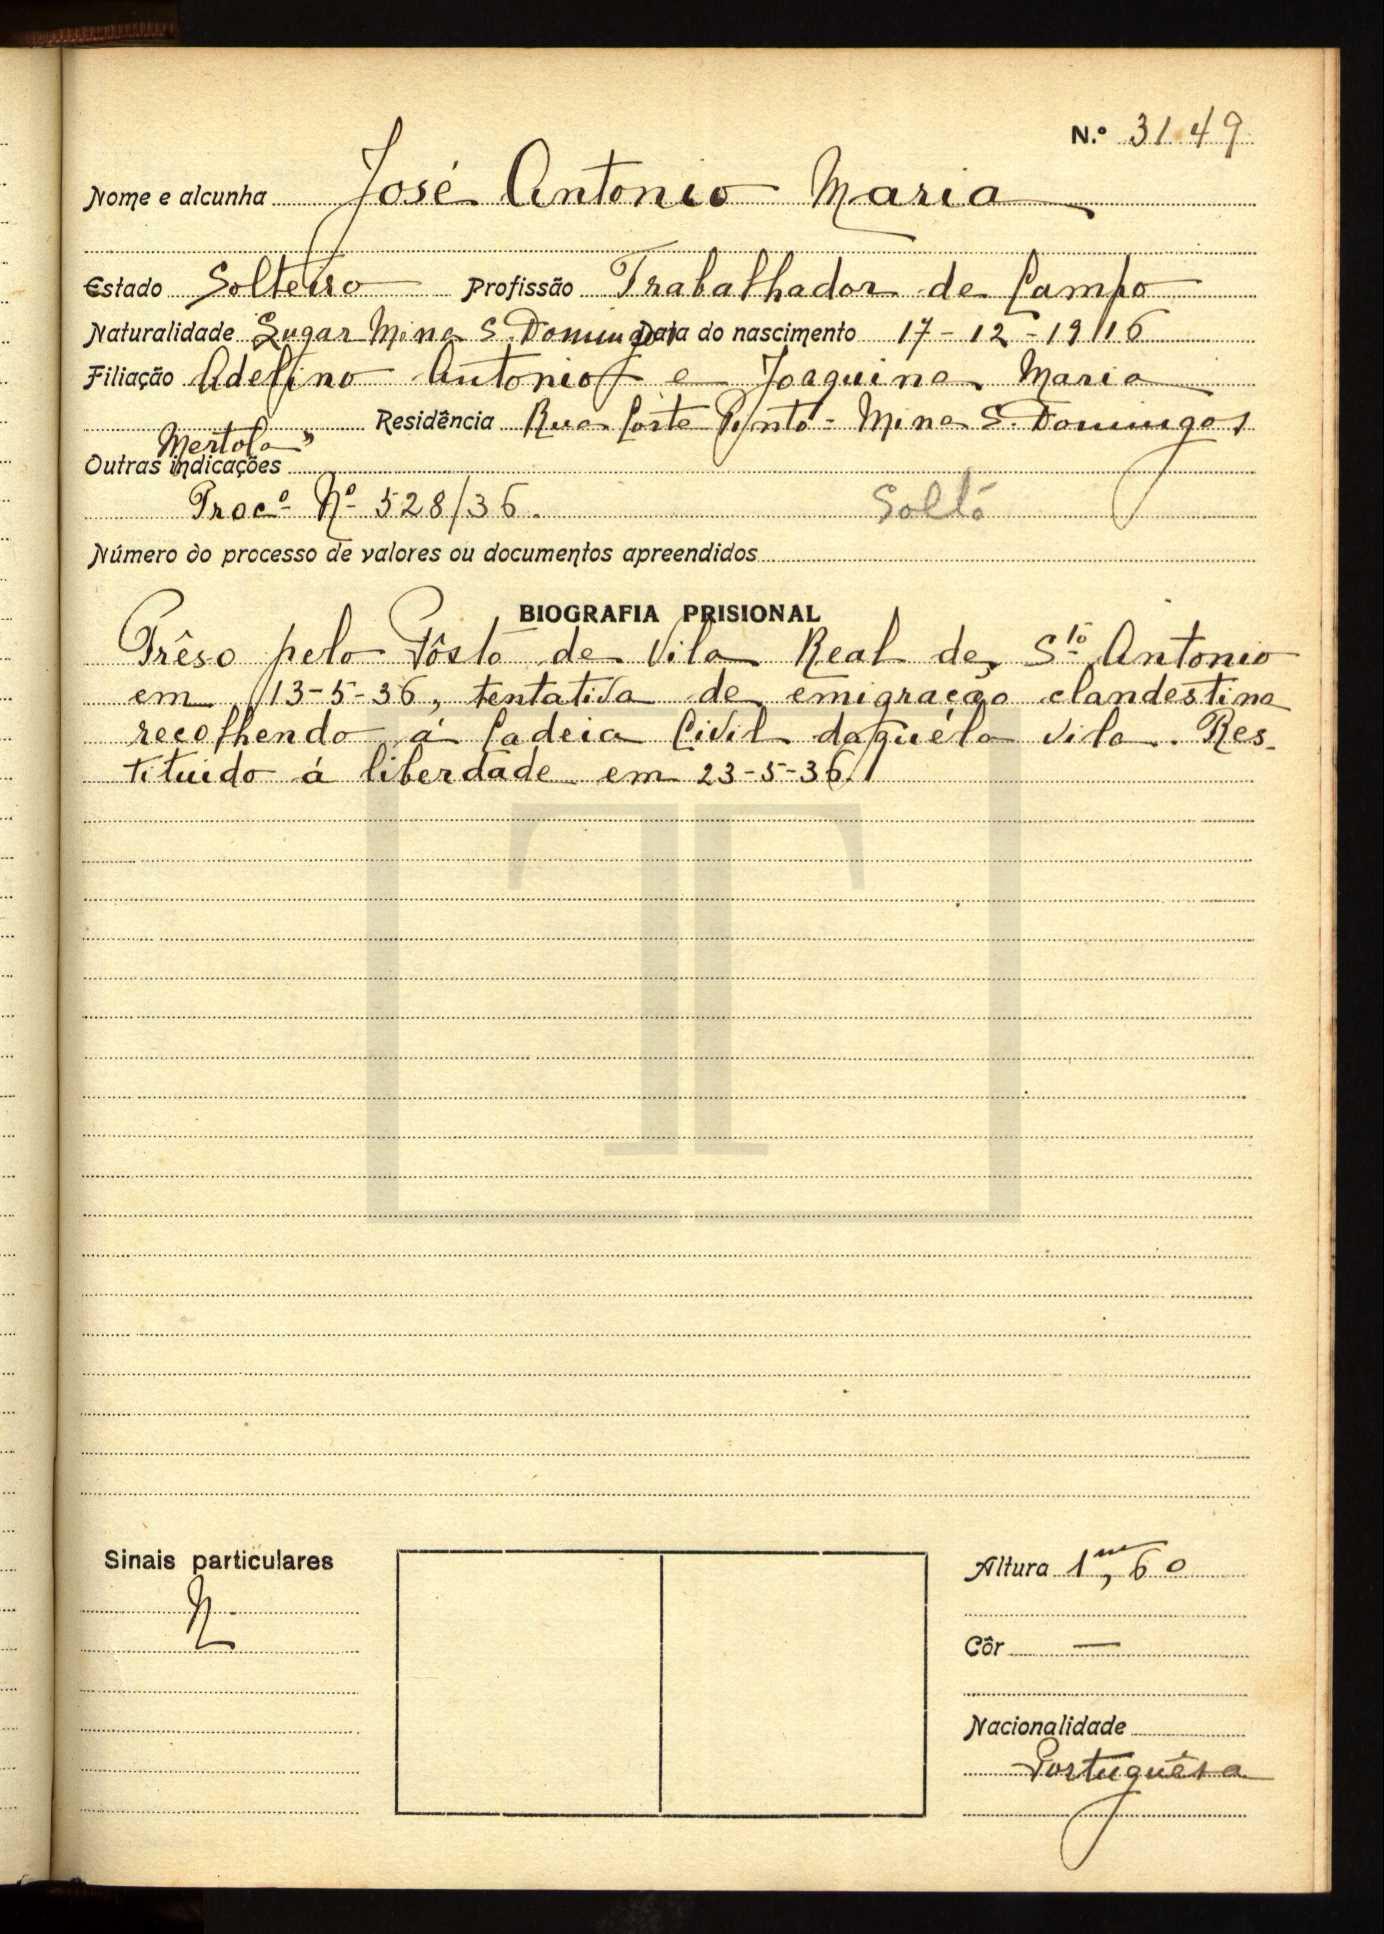 N.º 3149
Nome e alcunha José Antonio Maria
Estado Solteiro Profissão Trabalhador de Campo
Naturalidade Lugar Mina S. Domingos Data do nascimento 17-12-1916
Filiação Adelino Antonio e Joaquina Maria
Residência Rua Corte Pinto - Mina S. Domingos
Mertola
Outras indicações
Procº Nº 528/36. Soltó
Número do processo de valores ou documentos apreendidos
BIOGRAFIA PRISIONAL
Prêso pelo Pôsto de Vila Real de Stº Antonio
em 13-5-36, tentativa de emigração clandestina
recolhendo á Cadeia Civil daquéla vila. Res-
tituido á liberdade em 23-5-36.
Sinais particulares
N.
Altura 1m,60
Côr —
Nacionalidade
Portuguêsa